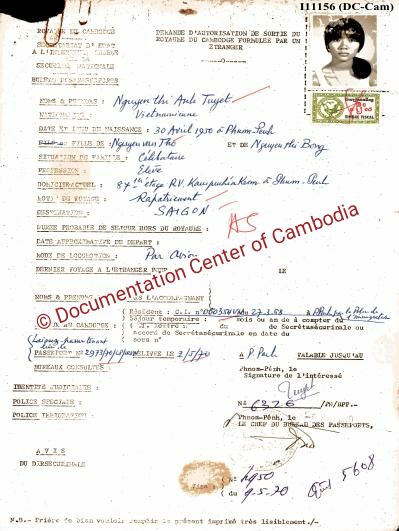 I11156 (DC-Cam)
ROYAUME DU CAMBODGE
SECRETARIAT D'ETAT
A L'INTERIEUR CHARGE
DE LA
SECURITE NATIONALE
BUREAU DES PASSEPORTS
DEMANDE D'AUTORISATION DE SORTIE DU
ROYAUME DU CAMBODGE FORMULEE PAR UN
ETRANGER
TIMBRE FISCAL
NOMS & PRENOMS : Nguyen thi Anh Tuyet
NATIONALITE : Vietnamienne
DATE ET LIEU DU NAISSANCE : 30 Avril 1950 à Phnom-Penh
FILLE DE : Nguyen van Thô ET DE Nguyen thi Bong
SITUATION DE FAMILLE : Célibataire
PROFESSION : Elève
DOMICILE ACTUEL : étage R.V. Kampuchia Krom à Phnom-Penh
MOTIF DU VOYAGE : Rapatriement
DESTINATION : SAIGON
DUREE PROBABLE DE SEJOUR HORS DU ROYAUME :
AS
DATE APPROXIMATIVE DU DEPART :
MODE DE LOCOMOTION : Par Avion
DERNIER VOYAGE A L'ETRANGER POUR LE
NOMS & PRENOMS L'ACCOMPAGNANT
© Documentation Center of Cambodia
Résident : C.I. n° du 27.3.58 à
Séjour temporaire : mois ou an de à compter du
AU CAMBODGE : de Secrétasécurinale ou
accord de Secrétasécurinale en date du
sous n°
Laissez-passer tenant
lieu de
PASSEPORT N° DELIVRE 2/5/70 à P. Penh VALABLE JUSQU'AU
BUREAUX CONSULTES : Phnom-Pénh, le
Signature de l'intéressé
IDENTITE JUDICIAIRE : Tuyet
POLICE SPECIALE : N° 6226 /PN/BPP.-
POLICE IMMIGRATION : Phnom-Pénh, le
LE CHEF DU BUREAU DES PASSEPORTS,
A V I S
DU DIRSECURINALE
N° 4950
du 9-5-70
5608
N.B.- Prière de bien vouloir remplir le présent imprimé très lisiblement./-